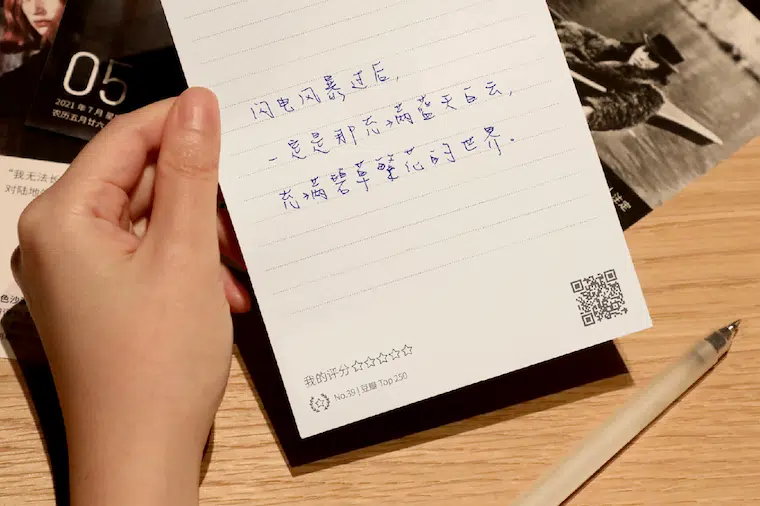 05
2021 年 7 月 星
农历五月廿六
“我无法长
对陆地
色沙
闪电风暴过后，
一定是那充满蓝天白云，
充满碧草繁花的世界.
我的评分☆☆☆☆☆
No.39 | 豆瓣 Top 250